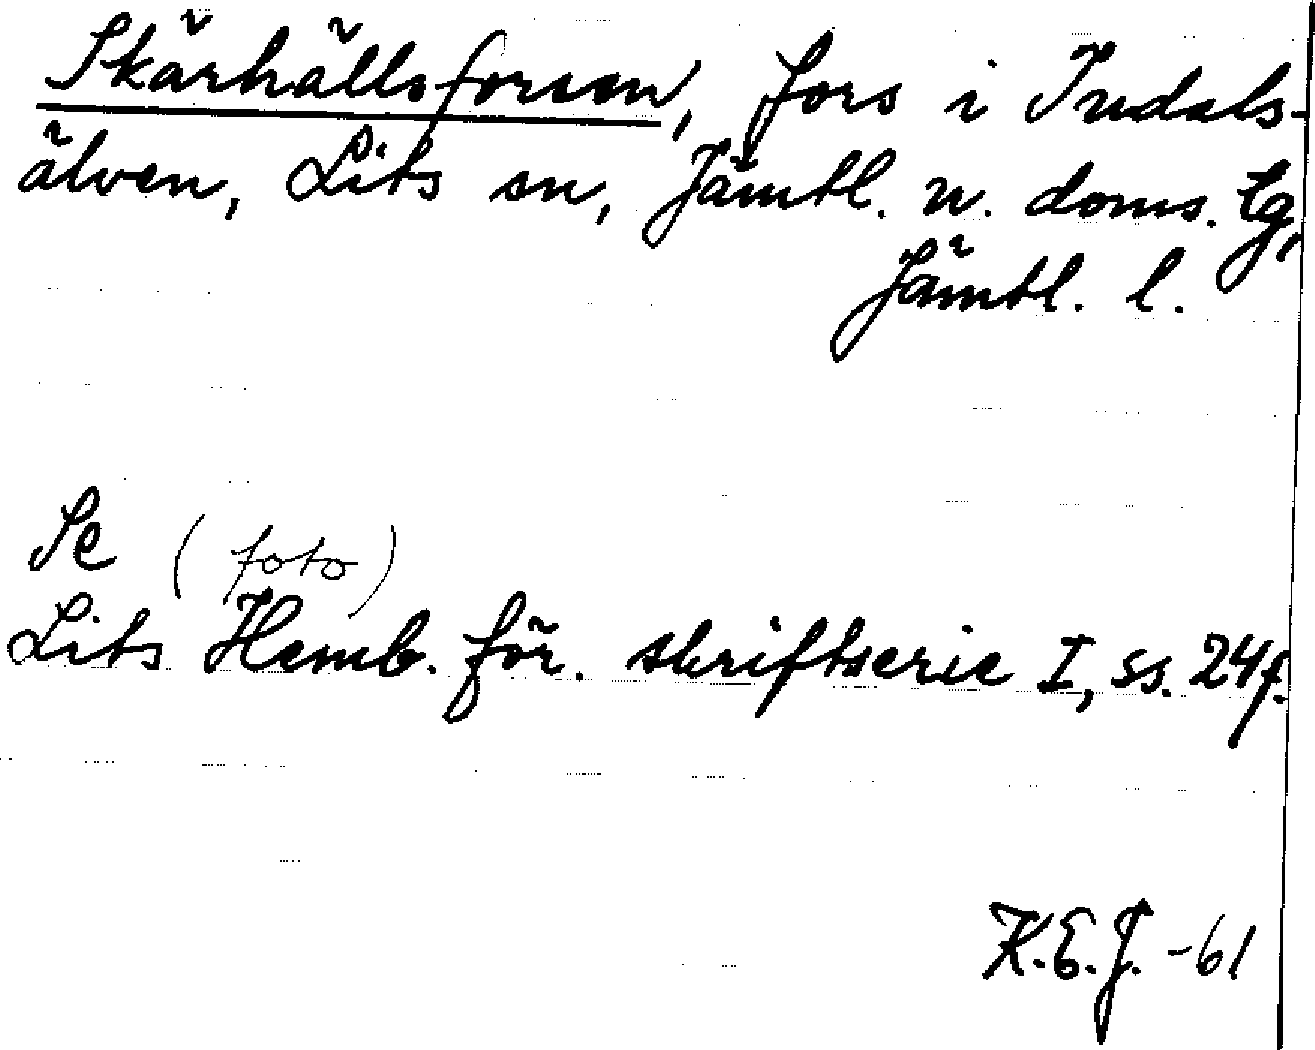 Skärhällsforsen, fors i Indals-
älven, Lits sn, Jämtl. n. doms. tg,
Jämtl. l.
Se (foto)
Lits Hemb. för. skriftserie I, ss. 24f.
K.E.J. -61